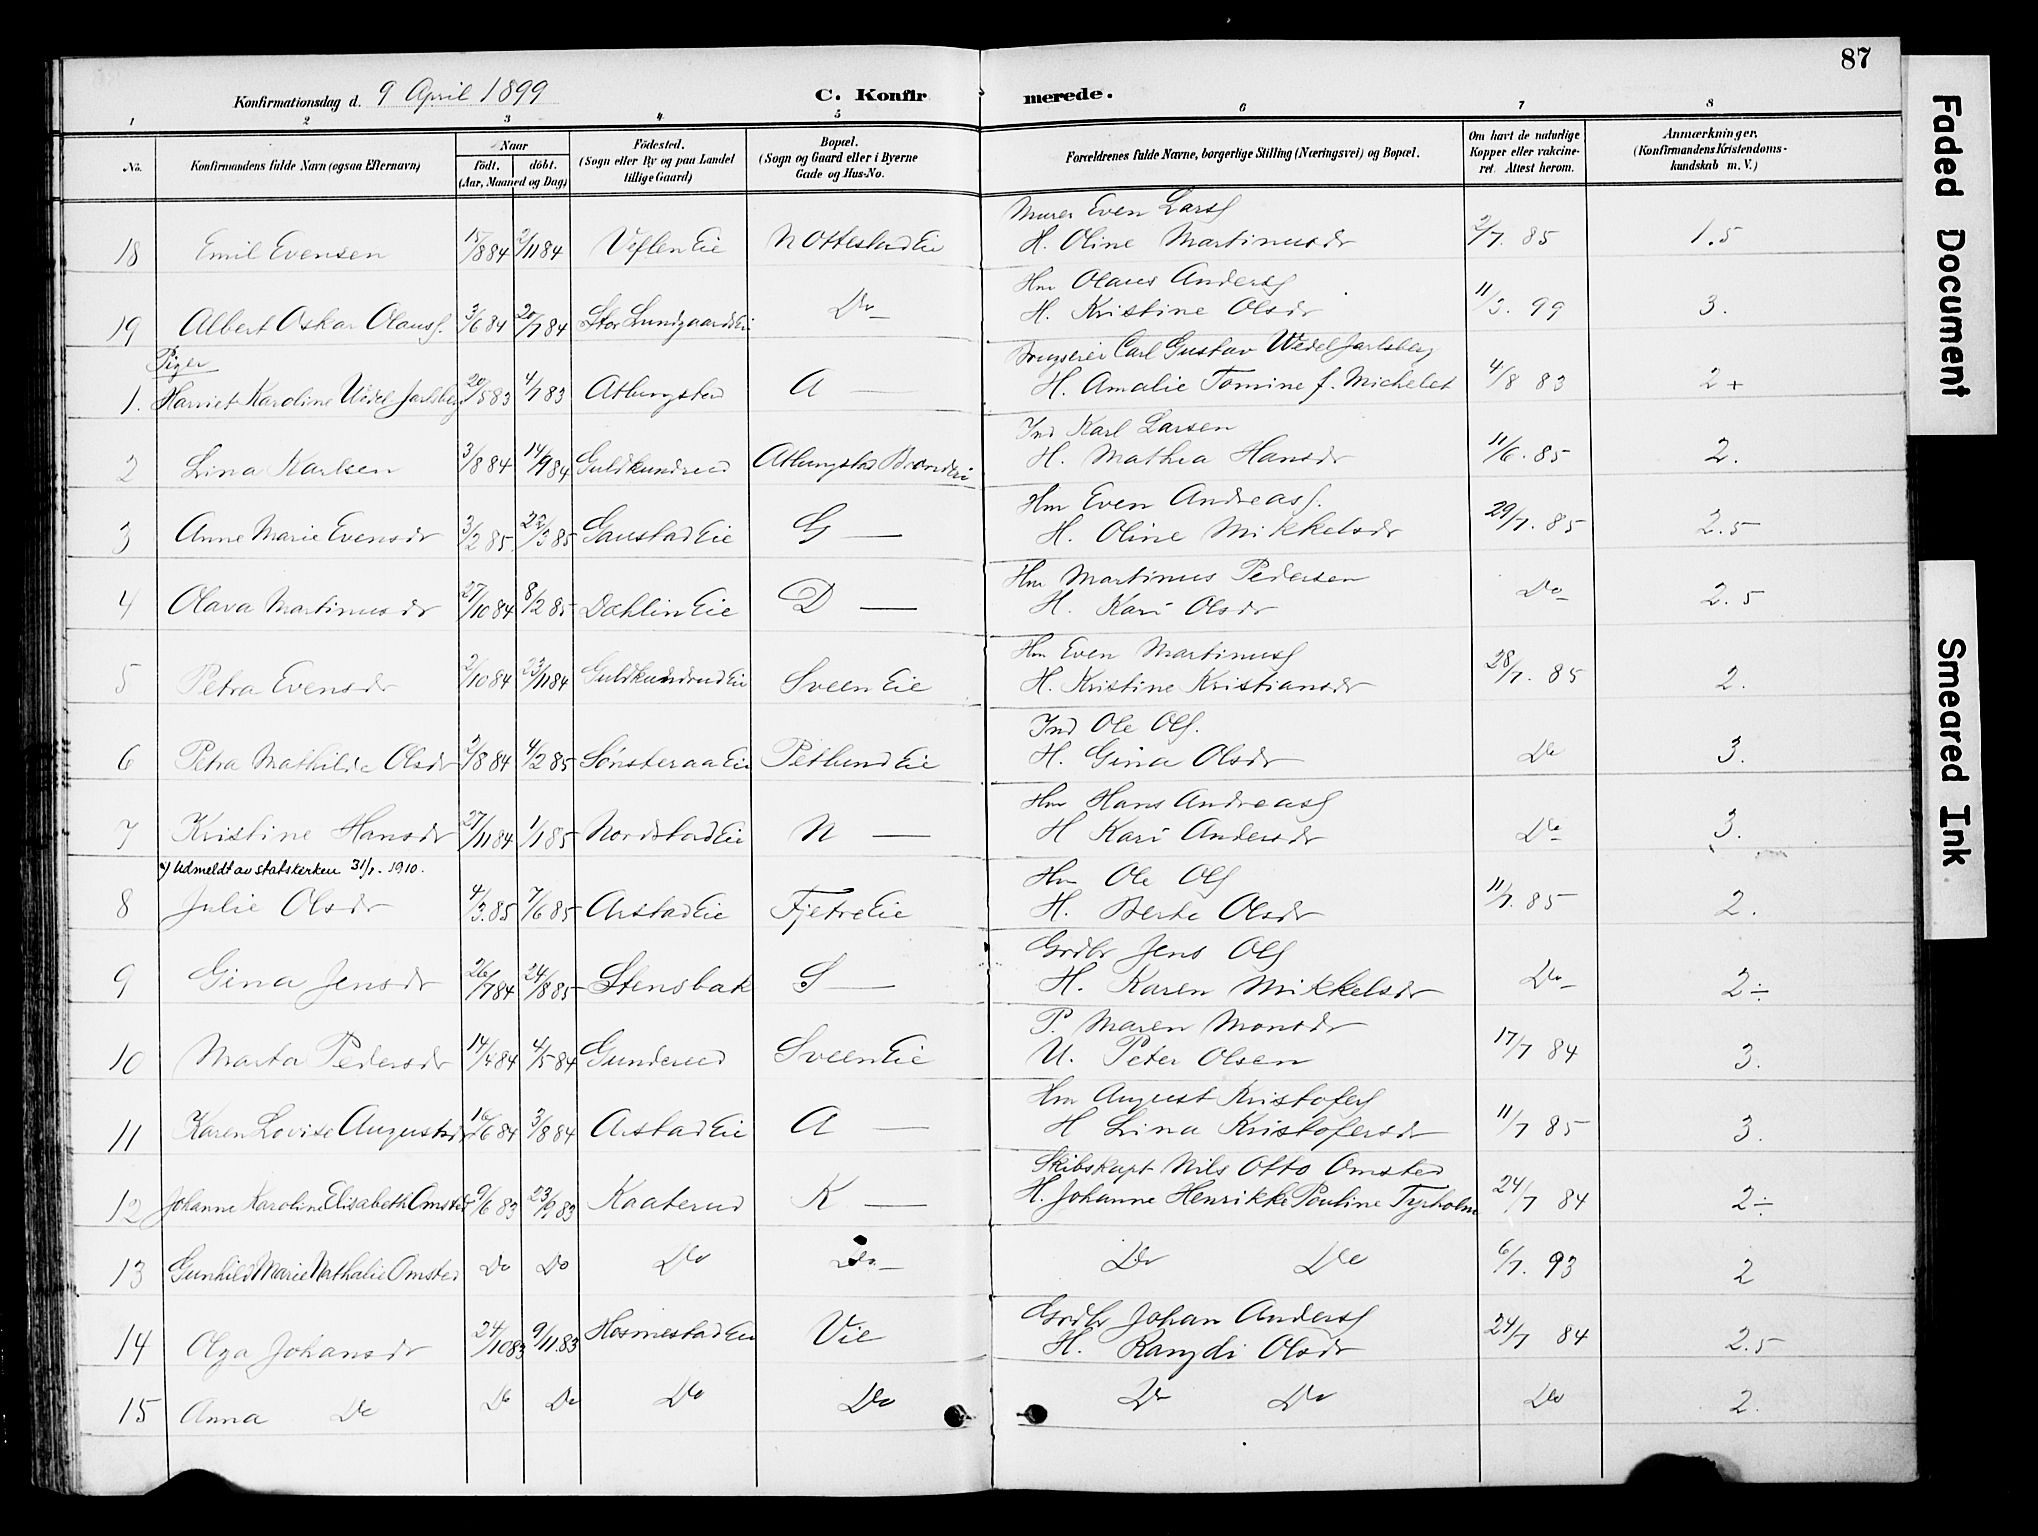 87
Konfirmationsdag d. 9 April 1899 C. Konfir merede.
1 2 3 4 5 6 7 8
No. Konfirmandens fulde Navn (ogsaa Efternavn) Naar født. døbt. (Aar, Maaned og Dag) Fødested. (Sogn eller By og paa Landet tillige Gaard) Bopæl. (Sogn og Gaard eller i Byerne Gade og Hus-No. Forældrenes fulde Navne, borgerlige Stilling (Næringsvei) og Bopæl. Om havt de naturlige Kopper eller vakcineret. Attest herom. Anmærkninger. (Konfirmandens Kristendomskundskab m. V.)
Murer Even Larsf
18 Emil Evensen 15/8 84 2/11 84 Veflen Eie N Ottestad Eie H. Oline Martinusdr 2/7. 85 1.5
Hm Olaus Andersf
19 Albert Oskar Olausf. 3/6 84 20/7 84 Stor Lundgaard Ei Do H. Kristine Olsdr 11/3. 99 3.
Piger
Carl Gustav Wedel Jarlsberg
1. Harriet Karoline Wedel Jarlsberg 20/5 83 4/7 83 Atlungstad A — H. Amalie Tomine f. Michelet 4/8 83 2+
Ind Karl Larsen
2 Lina Karlsen 3/8 84 14/9 84 Guldkundrud Atlungstad Brænderi H. Mathea Hansdr 11/6. 85 2.
Hm Even Andreasf.
3 Anne Marie Evensdr 3/2 85. 22/3 85 Gaustad Eie G — H. Oline Mikkelsdr 29/7. 85 2.5
Hm Martinus Pedersen
4 Olava Martinusdr 27/10 84 8/2 85 Dæhlin Eie D — H. Kari Olsdr Do 2.5
Hm Even Martinusf
5 Petra Evensdr 2/10 84 23/11 84 Guldkundrud Eie Sveen Eie H. Kristine Kristiansdr 28/7. 85 2.
Ind Ole Olf.
6 Petra Mathilde Olsdr 2/8 84 4/2 85 Sønsteraa Eie Petlund Eie H. Gina Olsdr Do 3.
Hm Hans Andreasf
7 Kristine Hansdr 27/11 84 1/1 85 Nordstad Eie N — H Kari Andersdr Do 3.
*) Udmeldt av statskirken 31/1. 1910.
Hm Ole Olf
8 Julie Olsdr 4/3. 85 7/6 85 Arstad Eie Fjetre Eie H. Berte Olsdr 11/7. 85 2.
Grdbr Jens Olf
9 Gina Jensdr 26/7 84 24/8 85 Stensbak S — H. Karen Mikkelsdr Do 2÷
P. Maren Monsdr
10 Marta Pedersdr 14/4 84 4/5 84 Gunderud Sveen Eie U. Peter Olsen 17/7 84 3.
Hm August Kristoferf
11 Karen Lovise Augustsdr 16/6 84 3/8 84 Arstad Eie A — H Lina Kristofersdr 11/7 85 3.
Skibskapt Nils Otto Omsted
12 Johanne Karoline Elisabeth Omsted 9/6 83 23/9 83 Kaaterud K — H. Johanne Henrikke Pouline Tyrholm 24/7 84 2÷
13 Gunhild Marie Nathalie Omsted Do Do Do Do Do Do 6/7. 93 2
Grdbr Johan Andersf
14 Olga Johansdr 24/10 83 9/11 83 Hosmestad Eie Vie H. Rangdi Olsdr 24/7 84 2.5
15 Anna Do Do Do Do Do Do Do Do 2.
Faded Document
Smeared Ink